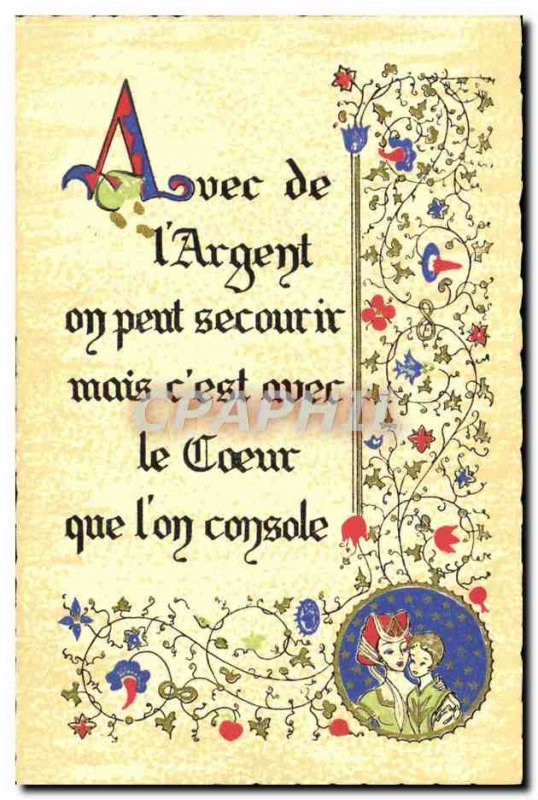 Avec de
l'Argent
on peut secourir
mais c'est avec
le Coeur
que l'on console
CPAPHIL